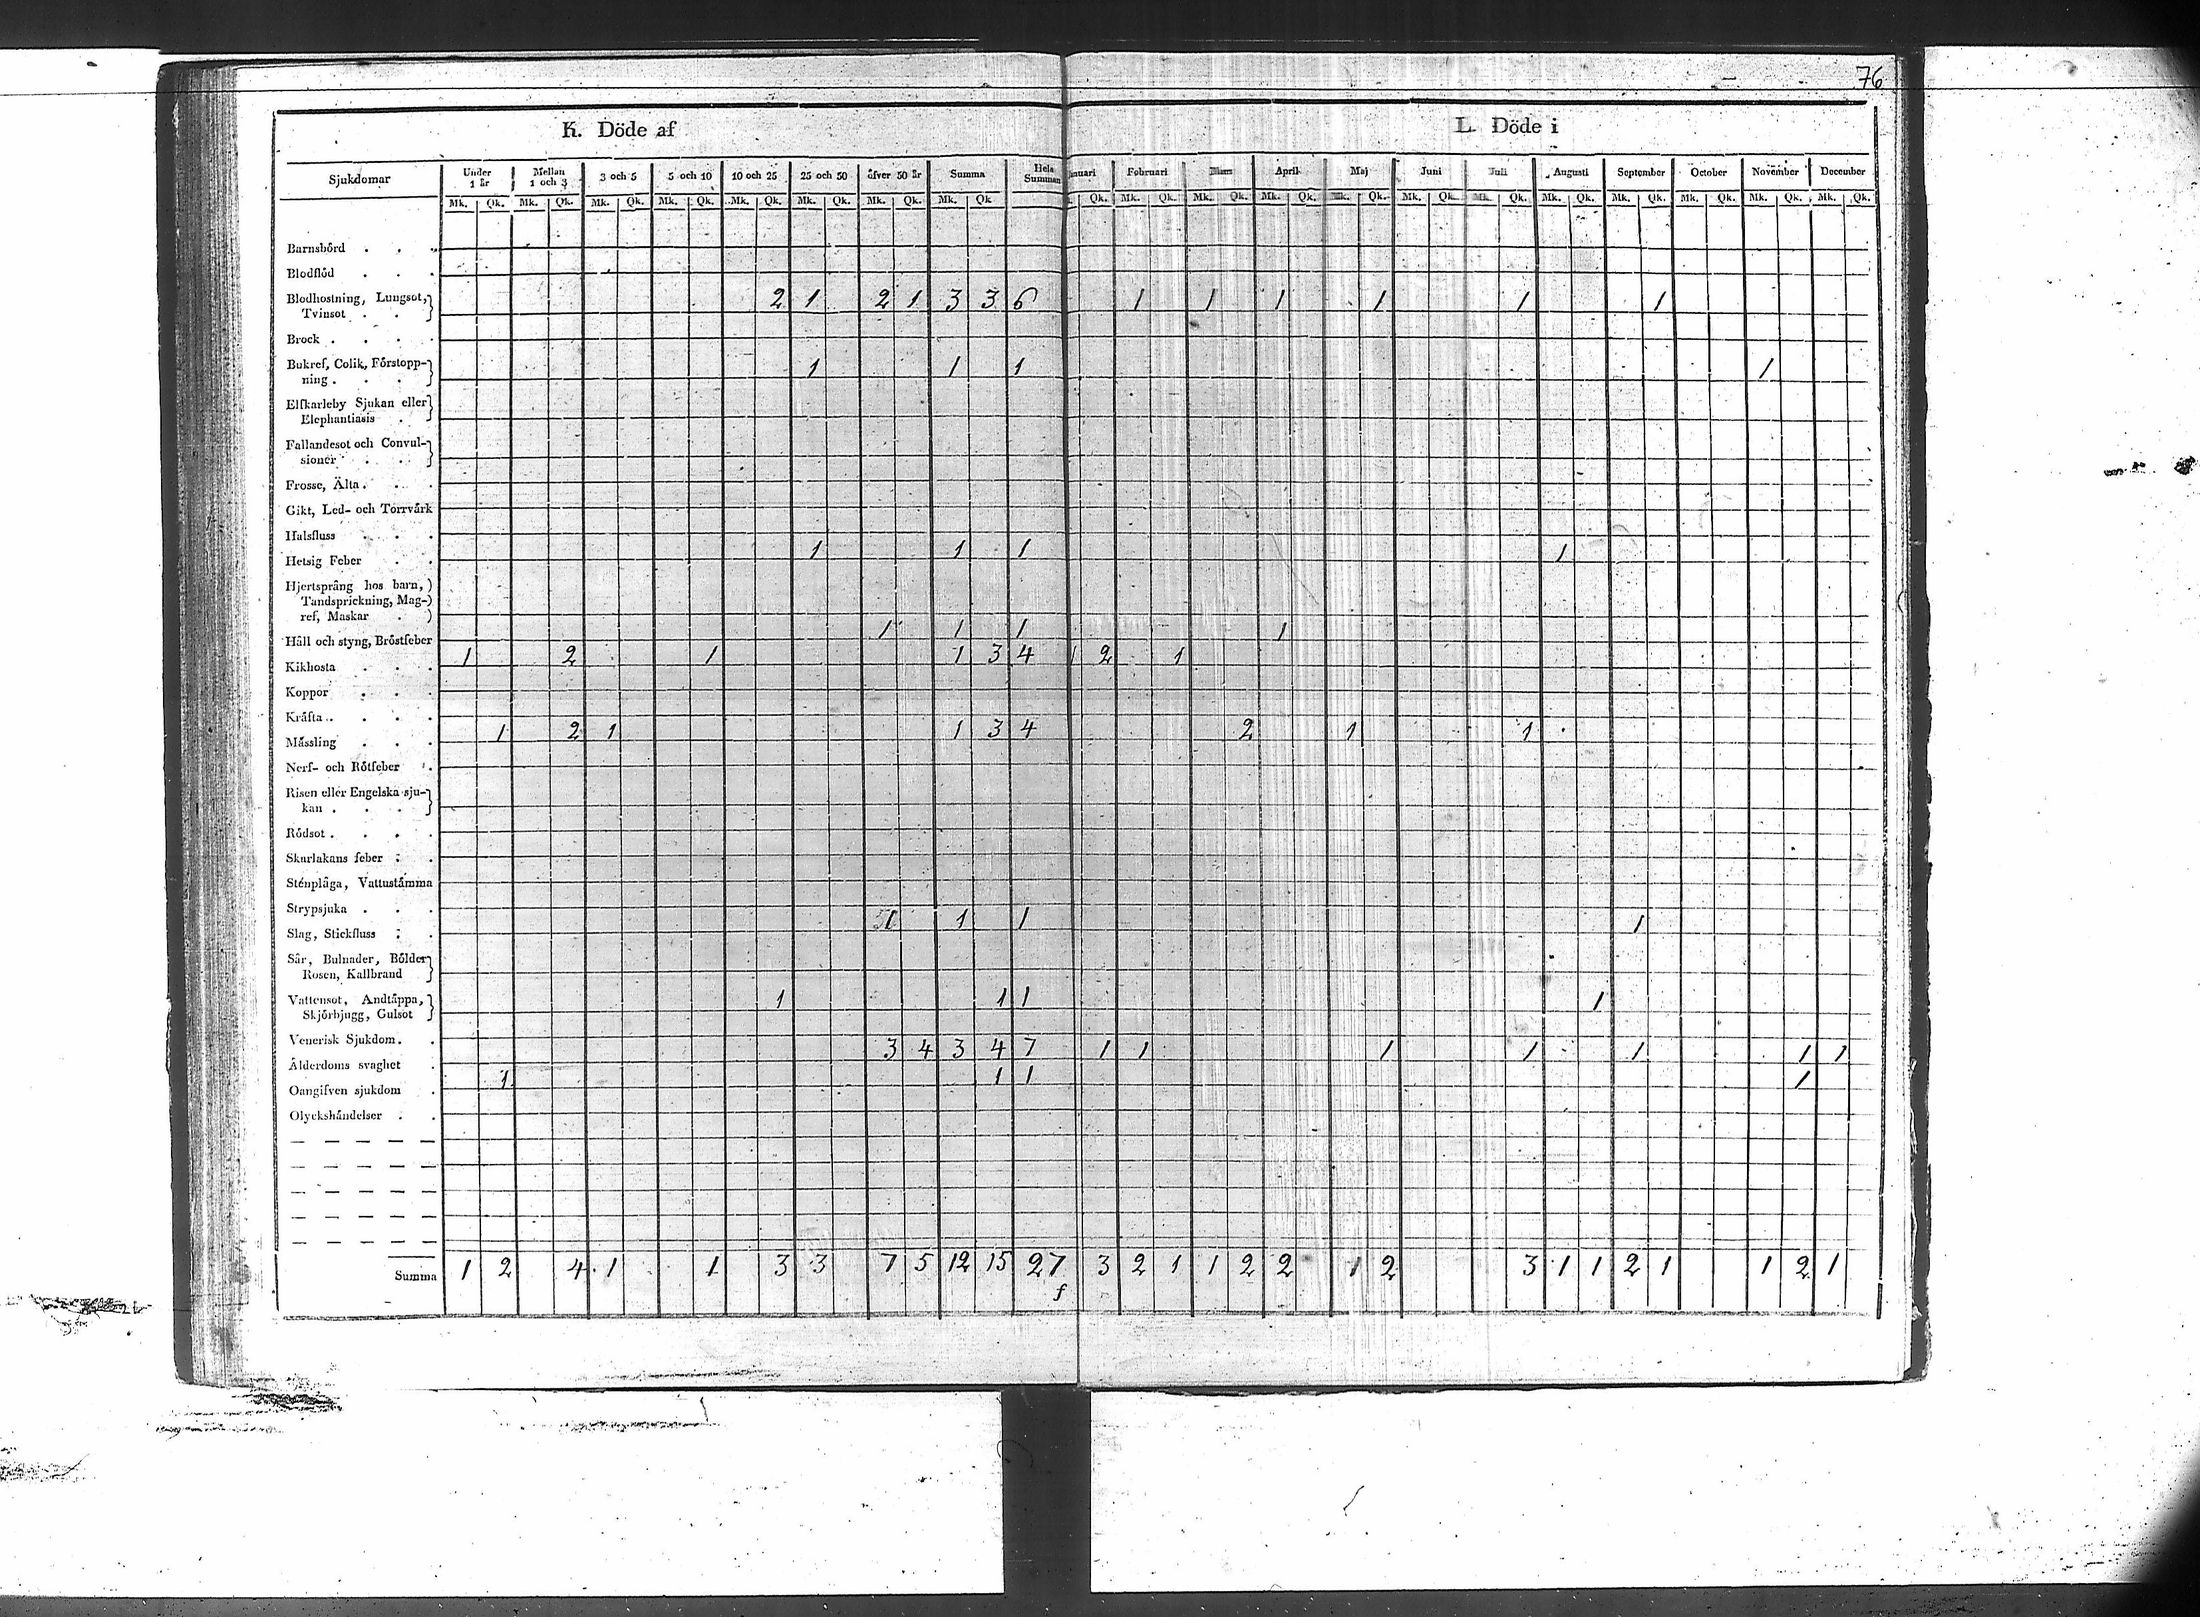 76
K. Döde af L. Döde i
Sjukdomar Under 1 år Mellan 1 och 3 3 och 5 5 och 10 10 och 25 25 och 50 åfver 50 år Summa Hela Summan nuari Februari April Maj Juni Juli Augusti September October November December
Mk. Qk. Mk. Qk. Mk. Qk. Mk. Qk. Mk. Qk. Mk. Qk. Mk. Qk. Mk. Qk Qk. Mk. Qk. Mk. Qk. Mk. Qk. Mk. Qk. Mk. Qk. Mk. Qk. Mk. Qk. Mk. Qk. Mk. Qk. Mk. Qk. Mk. Qk.
Barnsbörd . . .
Blodflöd . . .
Blodhostning, Lungsot, 2 1 2 1 3 3 6 1 1 1 1 1 1
Tvinsot . .
Brock . . . .
Bukref, Colik, Förstopp- 1 1 1 1
ning . . .
Elfkarleby Sjukan eller
Elephantiasis .
Fallandesot och Convul-
sioner . . .
Frosse, Älta . . .
Gikt, Led- och Torrvärk
Halsfluss . . .
Hetsig Feber . . 1 1 1 1
Hjertsprång hos barn,
Tandsprickning, Mag-
ref, Maskar .
Håll och styng, Bröstfeber 1 1 1 1
Kikhosta . . . 1 2 1 1 3 4 1 2 1
Koppor . . .
Kräfta . . . .
Mässling . . . 1 2 1 1 3 4 2 1 1
Nerf- och Rötfeber .
Risen eller Engelska sju-
kan . . .
Rödsot . . . .
Skarlakans feber . .
Stenplåga, Vattustämma
Strypsjuka . . .
Slag, Stickfluss . . 1 1 1 1
Sår, Bulnader, Bölder
Rosen, Kallbrand
Vattensot, Andtäppa, 1 1 1 1
Skjörbjugg, Gulsot
Venerisk Sjukdom . .
Ålderdoms svaghet . 3 4 3 4 7 1 1 1 1 1 1 1
Oangifven sjukdom . 1 1 1 1
Olyckshändelser . .
Summa 1 2 4 1 1 3 3 7 5 12 15 27 3 2 1 1 2 2 1 2 3 1 1 2 1 1 2 1
f